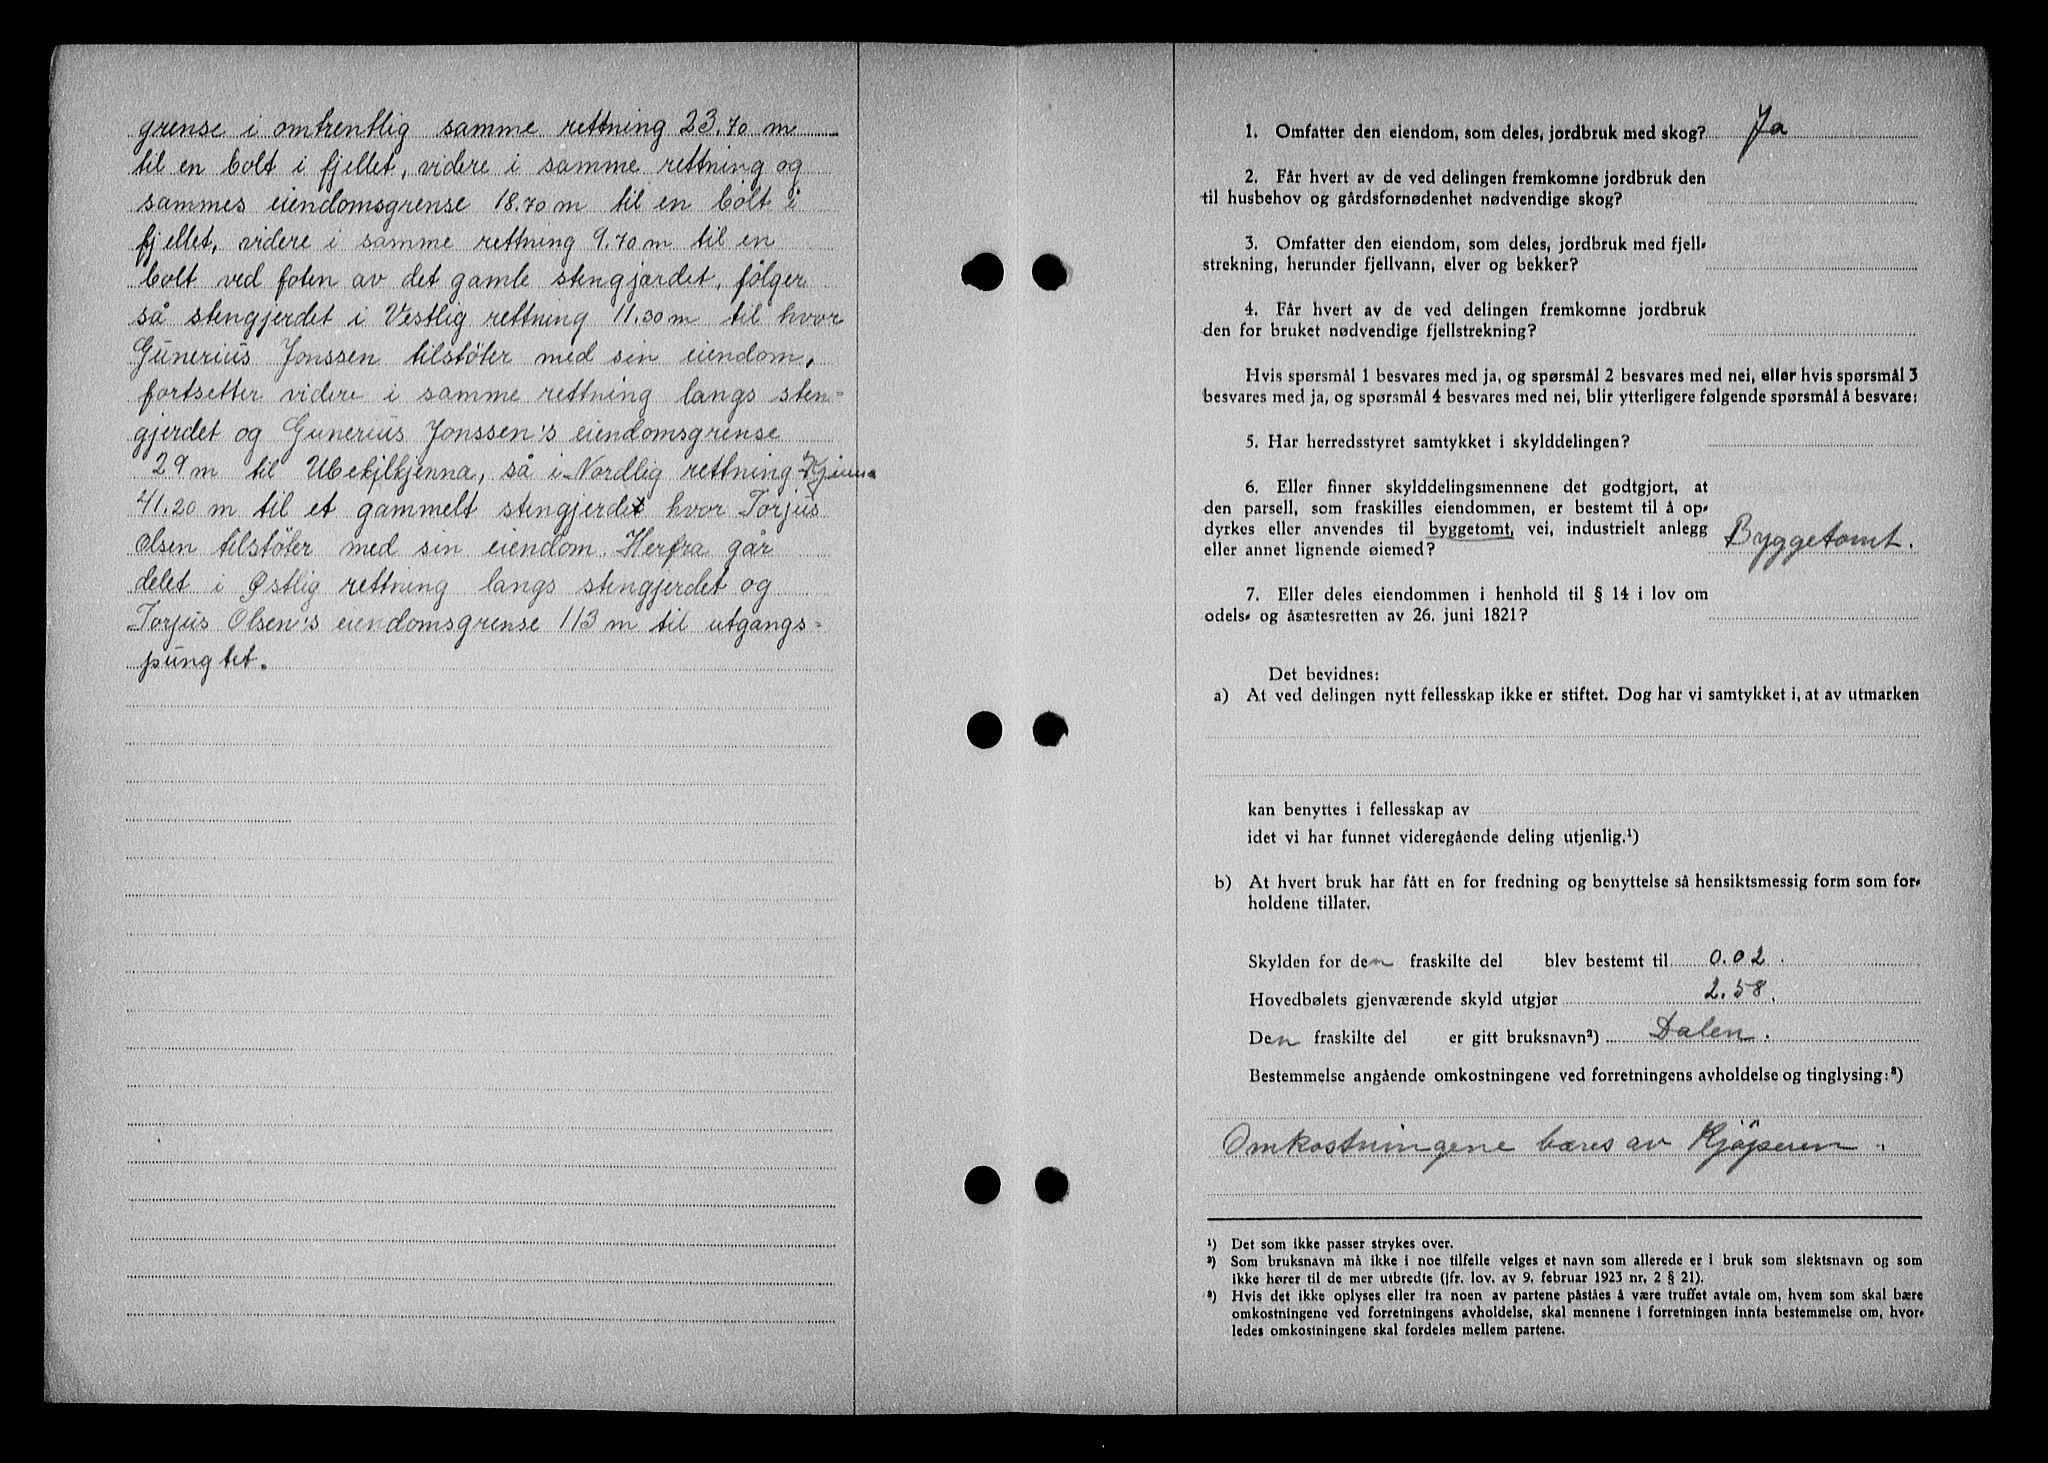 grense i omtrentlig samme rettning 23.70 m
til en bolt i fjellet, videre i samme rettning og
sammes eiendomsgrense 18.70 m til en bolt i
fjellet, videre i samme rettning 9.70 m til en
bolt ved foten av det gamle stengjærdet, følger
så stengjerdet i Vestlig rettning 11.30 m til hvor
Gunerius Jonssen tilstöter med sin eiendom,
fortsetter videre i samme rettning langs sten=
gjerdet og Gunerius Jonssen's eiendomsgrense
29 m til, så i Nordlig rettning
41.20 m til et gammelt stengjerde hvor Torjus
Olsen tilstöter med sin eiendom. Herfra går
delet i Østlig rettning langs stengjerdet og
Torjus Olsen's eiendomsgrense 113 m til utgangs=
pungtet.
1. Omfatter den eiendom, som deles, jordbruk med skog? Ja
2. Får hvert av de ved delingen fremkomne jordbruk den
til husbehov og gårdsfornødenhet nødvendige skog?
3. Omfatter den eiendom, som deles, jordbruk med fjell-
strekning, herunder fjellvann, elver og bekker?
4. Får hvert av de ved delingen fremkomne jordbruk
den for bruket nødvendige fjellstrekning?
Hvis spørsmål 1 besvares med ja, og spørsmål 2 besvares med nei, eller hvis spørsmål 3
besvares med ja, og spørsmål 4 besvares med nei, blir ytterligere følgende spørsmål å besvare:
5. Har herredsstyret samtykket i skylddelingen?
6. Eller finner skylddelingsmennene det godtgjort, at
den parsell, som fraskilles eiendommen, er bestemt til å op-
dyrkes eller anvendes til byggetomt, vei, industrielt anlegg
eller annet lignende øiemed? Byggetomt.
7. Eller deles eiendommen i henhold til § 14 i lov om
odels- og åsætesretten av 26. juni 1821?
Det bevidnes:
a) At ved delingen nytt fellesskap ikke er stiftet. Dog har vi samtykket i, at av utmarken
kan benyttes i fellesskap av
idet vi har funnet videregående deling utjenlig.¹)
b) At hvert bruk har fått en for fredning og benyttelse så hensiktsmessig form som for-
holdene tillater.
Skylden for den fraskilte del blev bestemt til 0.02.
Hovedbølets gjenværende skyld utgjør 2.58.
Den fraskilte del er gitt bruksnavn²) Dalen.
Bestemmelse angående omkostningene ved forretningens avholdelse og tinglysing:³)
Omkostningene bæres av Kjøperen.
¹) Det som ikke passer strykes over.
²) Som bruksnavn må ikke i noe tilfelle velges et navn som allerede er i bruk som slektsnavn og som
ikke hører til de mer utbredte (jfr. lov. av 9. februar 1923 nr. 2 § 21).
³) Hvis det ikke oplyses eller fra noen av partene påståes å være truffet avtale om, hvem som skal bære
omkostningene ved forretningens avholdelse, skal mennene i forretningen innta bestemmelse om, hvor-
ledes omkostningene skal fordeles mellem partene.